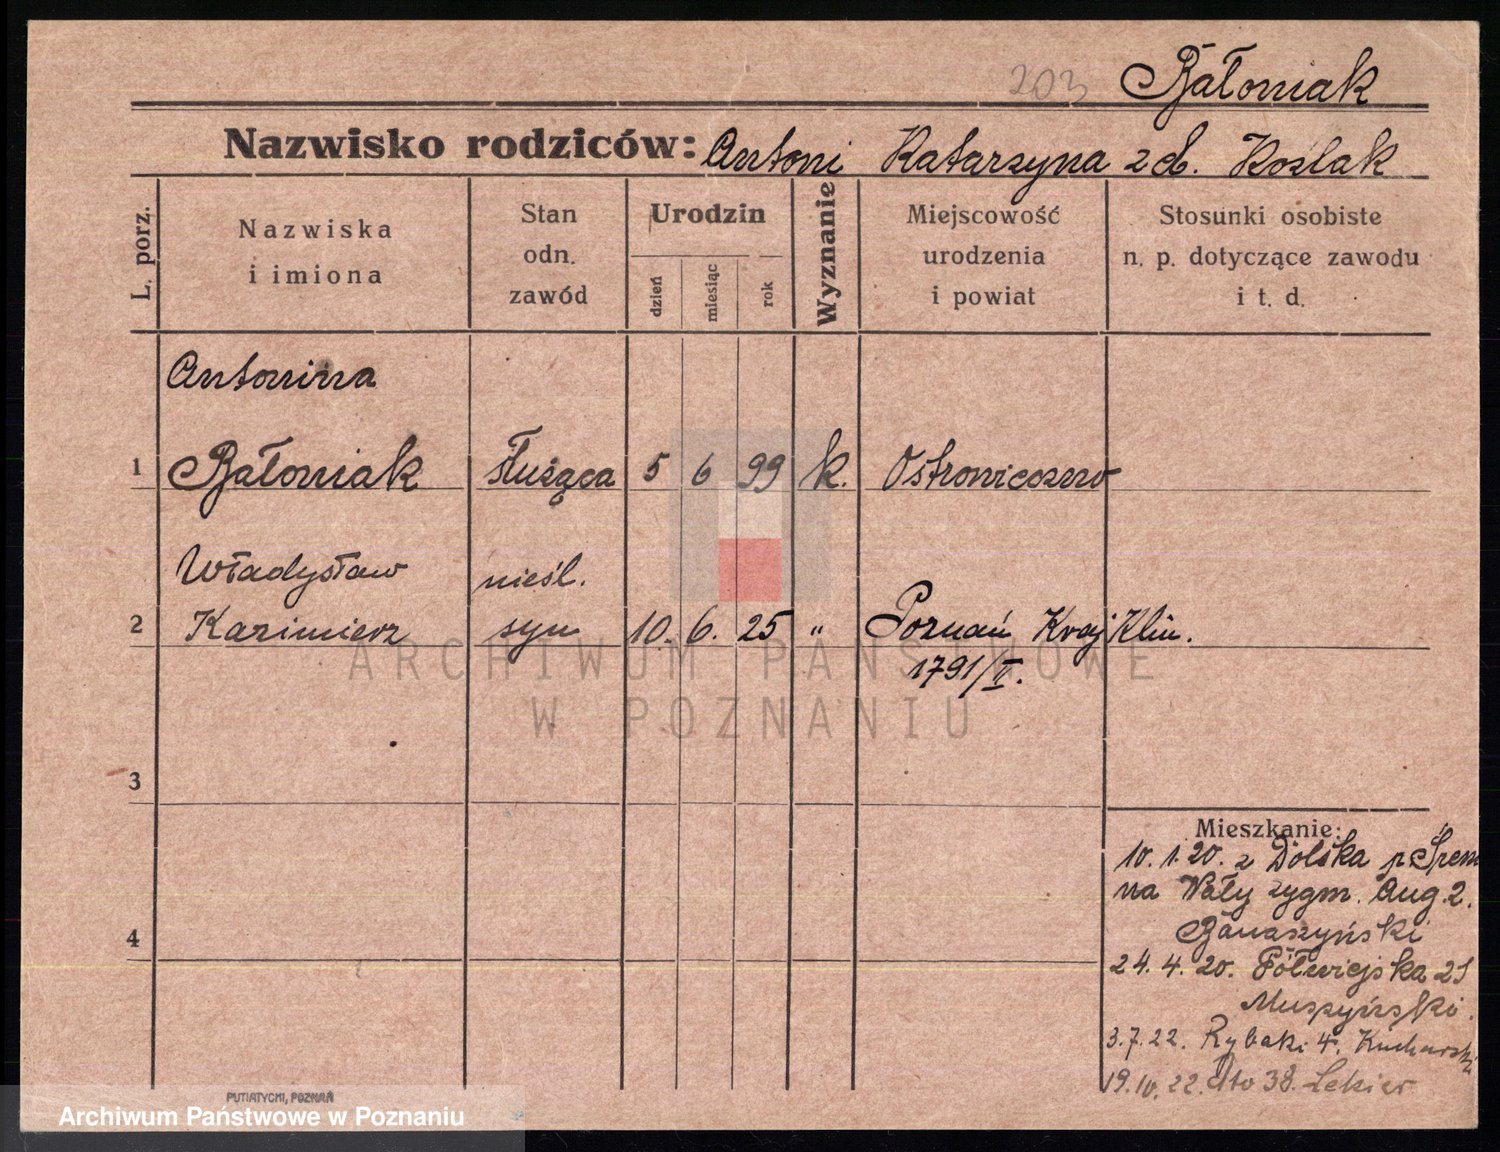 203 Bałoniak
Nazwisko rodziców: Antoni Katarzyna z d. Koźlak
L. porz.
Nazwiska
i imiona
Stan
odn.
zawód
Urodzin
dzień
miesiąc
rok
Wyznanie
Miejscowość
urodzenia
i powiat
Stosunki osobiste
n. p. dotyczące zawodu
i t. d.
Antonina
1 Bałoniak służąca 5 6 99 k. Ostrowieczno
Władysław nieśl.
2 Kazimierz syn 10. 6. 25 " Poznań Kraj Klin.
1791/II.
ARCHIWUM PAŃSTWOWE
W POZNANIU
3
4
Mieszkanie:
10.1.20. z Dolska p Śrem
na Wały zygm. Aug. 2.
Banaszyński
24.4.20. Półwiejska 21
Muszyński.
3.7.22. Rybaki 4. Kucharski
19.10.22. dto 38. Lekier
PUTIATYCKI, POZNAŃ
Archiwum Państwowe w Poznaniu